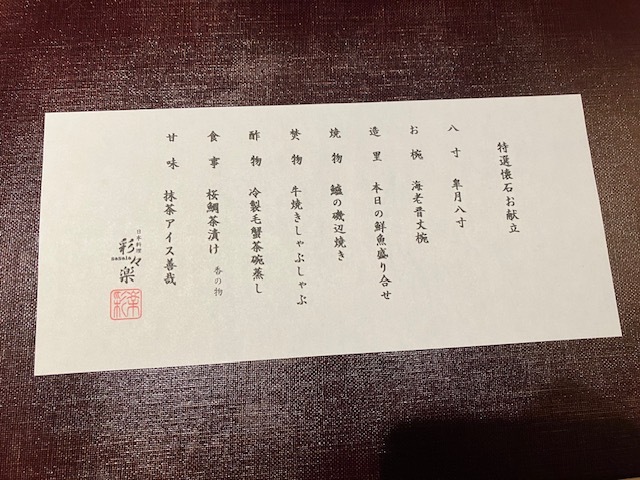 特選懐石お献立
八寸 皐月八寸
お椀 海老晋丈椀
造里 本日の鮮魚盛り合せ
焼物 鱸の磯辺焼き
焚物 牛焼きしゃぶしゃぶ
酢物 冷製毛蟹茶碗蒸し
食事 桜鯛茶漬け 香の物
甘味 抹茶アイス善哉
日本料理
彩々楽
sasara